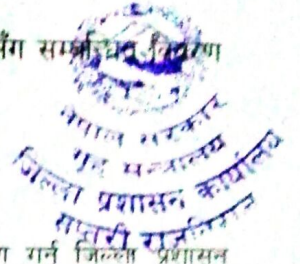 सँग सम्बन्धित विवरण
नेपाल सरकार
गृह मन्त्रालय
जिल्ला प्रशासन कार्यालय
सप्तरी राजविराज
गर्न जिल्ला प्रशासन